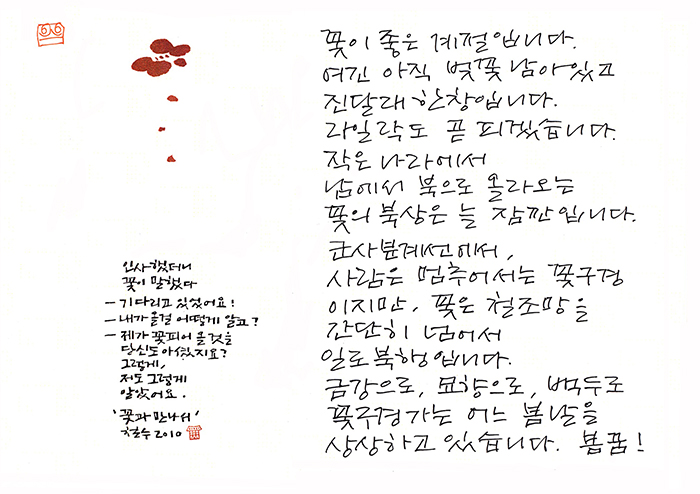 인사했더니
꽃이 말했다
- 기다리고 있었어요!
- 내가 올걸 어떻게 알고?
- 제가 꽃피어 올 것을
당신도 아셨지요?
그렇게,
저도 그렇게
알았어요.
'꽃과 만나서'
철수 2010
꽃이 좋은 계절입니다.
여긴 아직 벚꽃 남아있고
진달래 한창입니다.
라일락도 곧 피겠습니다.
작은 나라에서
남에서 북으로 올라오는
꽃의 북상은 늘 잠깐입니다.
군사분계선에서,
사람은 멈추어서는 꽃구경
이지만, 꽃은 철조망을
간단히 넘어서
일로북행입니다.
금강으로, 묘향으로, 백두로
꽃구경가는 어느 봄날을
상상하고 있습니다. 봄꿈!